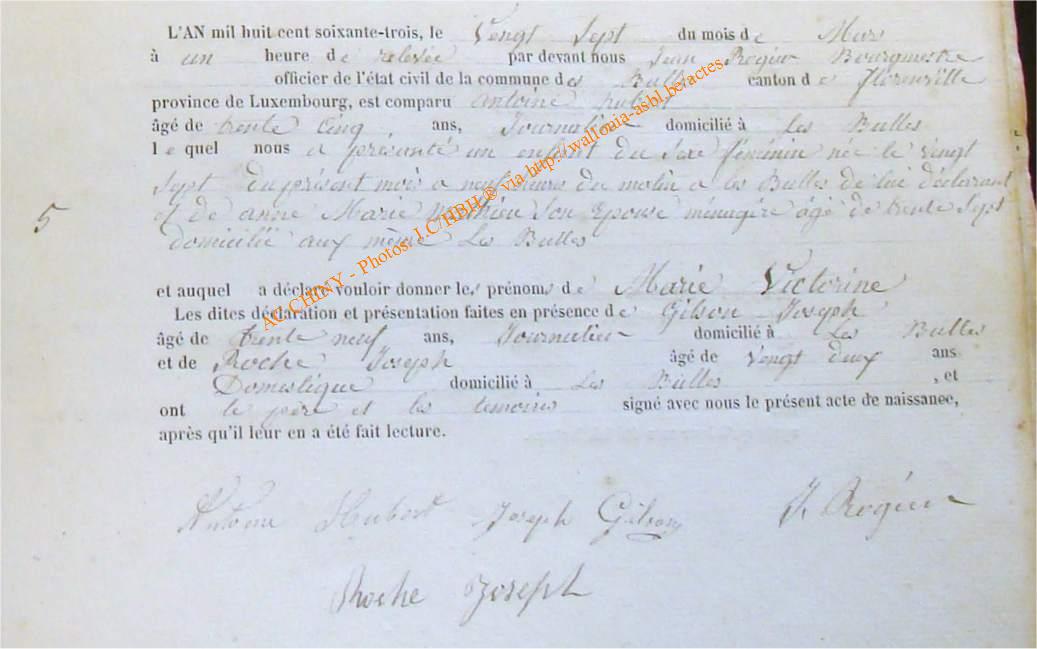 L'AN mil huit cent soixante-trois, le Vengt Sept du mois de Mars
à un heure de relevée par devant nous Jean Rogier Bourgmestre
officier de l'état civil de la commune des Bulles canton de florenville
province de Luxembourg, est comparu Antoine hubert
âgé de trente Cinq, ans, Journalier domicilié à Les Bulles
lequel nous a présenté un enfant du Sexe féminin née le vengt
Sept du présent mois a neuf heures du matin a les Bulles de lui déclarant
5
et de anne Marie Mathieu Son Epouse ménagère âgé de trente Sept
domicilié aux même Les Bulles
et auquel a déclaré vouloir donner les prénoms de Marie Victorine
Les dites déclaration et présentation faites en présence de Gilson Joseph
âgé de trente neuf ans, Journalier domicilié à Les Bulles
et de Roche Joseph âgé de vengt deux ans
Domestique domicilié à Les Bulles, et
ont le père et les temoins signé avec nous le présent acte de naissance,
après qu'il leur en a été fait lecture.
Antoine Hubert Joseph Gilson J. Rogier
Roche Joseph
AC CHINY - Photos: J.C/HBH ® via http://wallonia-asbl.be/actes.